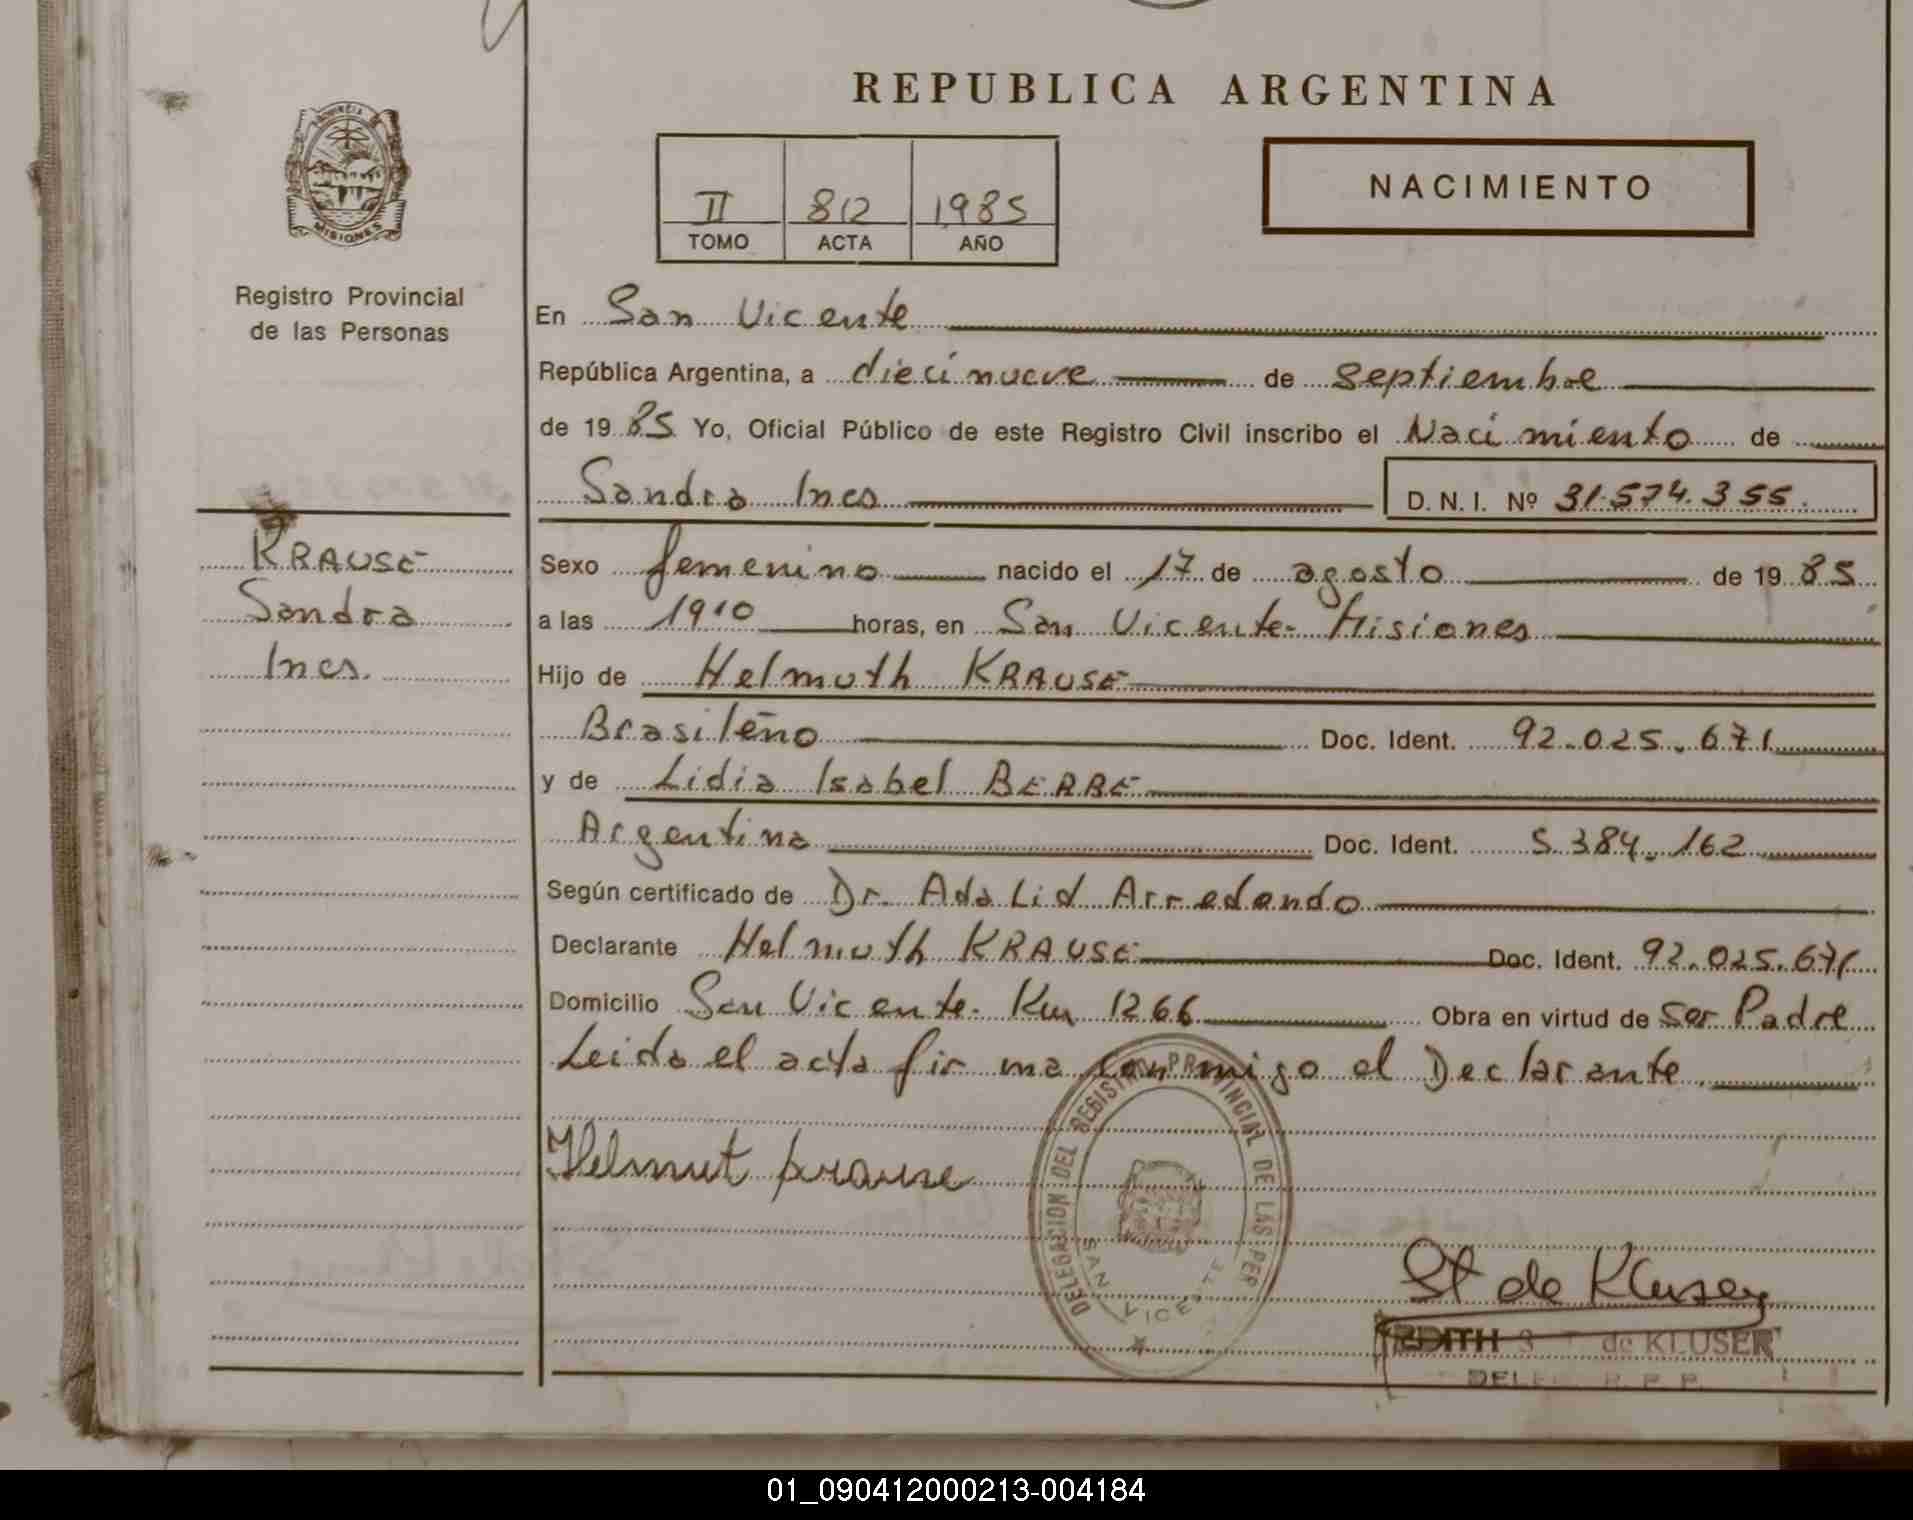 REPUBLICA ARGENTINA
II 812 1985
TOMO ACTA AÑO
NACIMIENTO
PROVINCIA
MISIONES
Registro Provincial
de las Personas
KRAUSE
Sandra
Ines.
En San Vicente
República Argentina, a diecinueve de septiembre
de 1985 Yo, Oficial Público de este Registro Civil inscribo el Nacimiento de
Sandra Ines D.N.I. Nº 31.574.355.
Sexo femenino nacido el 17 de agosto de 1985
a las 19'10 horas, en San Vicente- Misiones
Hijo de Helmuth KRAUSE
Brasileño Doc. Ident. 92.025.671
y de Lidia Isabel BERBE
Argentina Doc. Ident. 5.384.162
Según certificado de Dr. Adalid Arredondo
Declarante Helmuth KRAUSE Doc. Ident. 92.025.671
Domicilio San Vicente- Km 1266 Obra en virtud de ser Padre
Leido el acta firma conmigo el Declarante
Helmut Krause
DELEGACION DEL REGISTRO PROVINCIAL DE LAS PER
SAN VICENTE
St de Kluser
EDITH S de KLUSER
R.P.P.
01_090412000213-004184